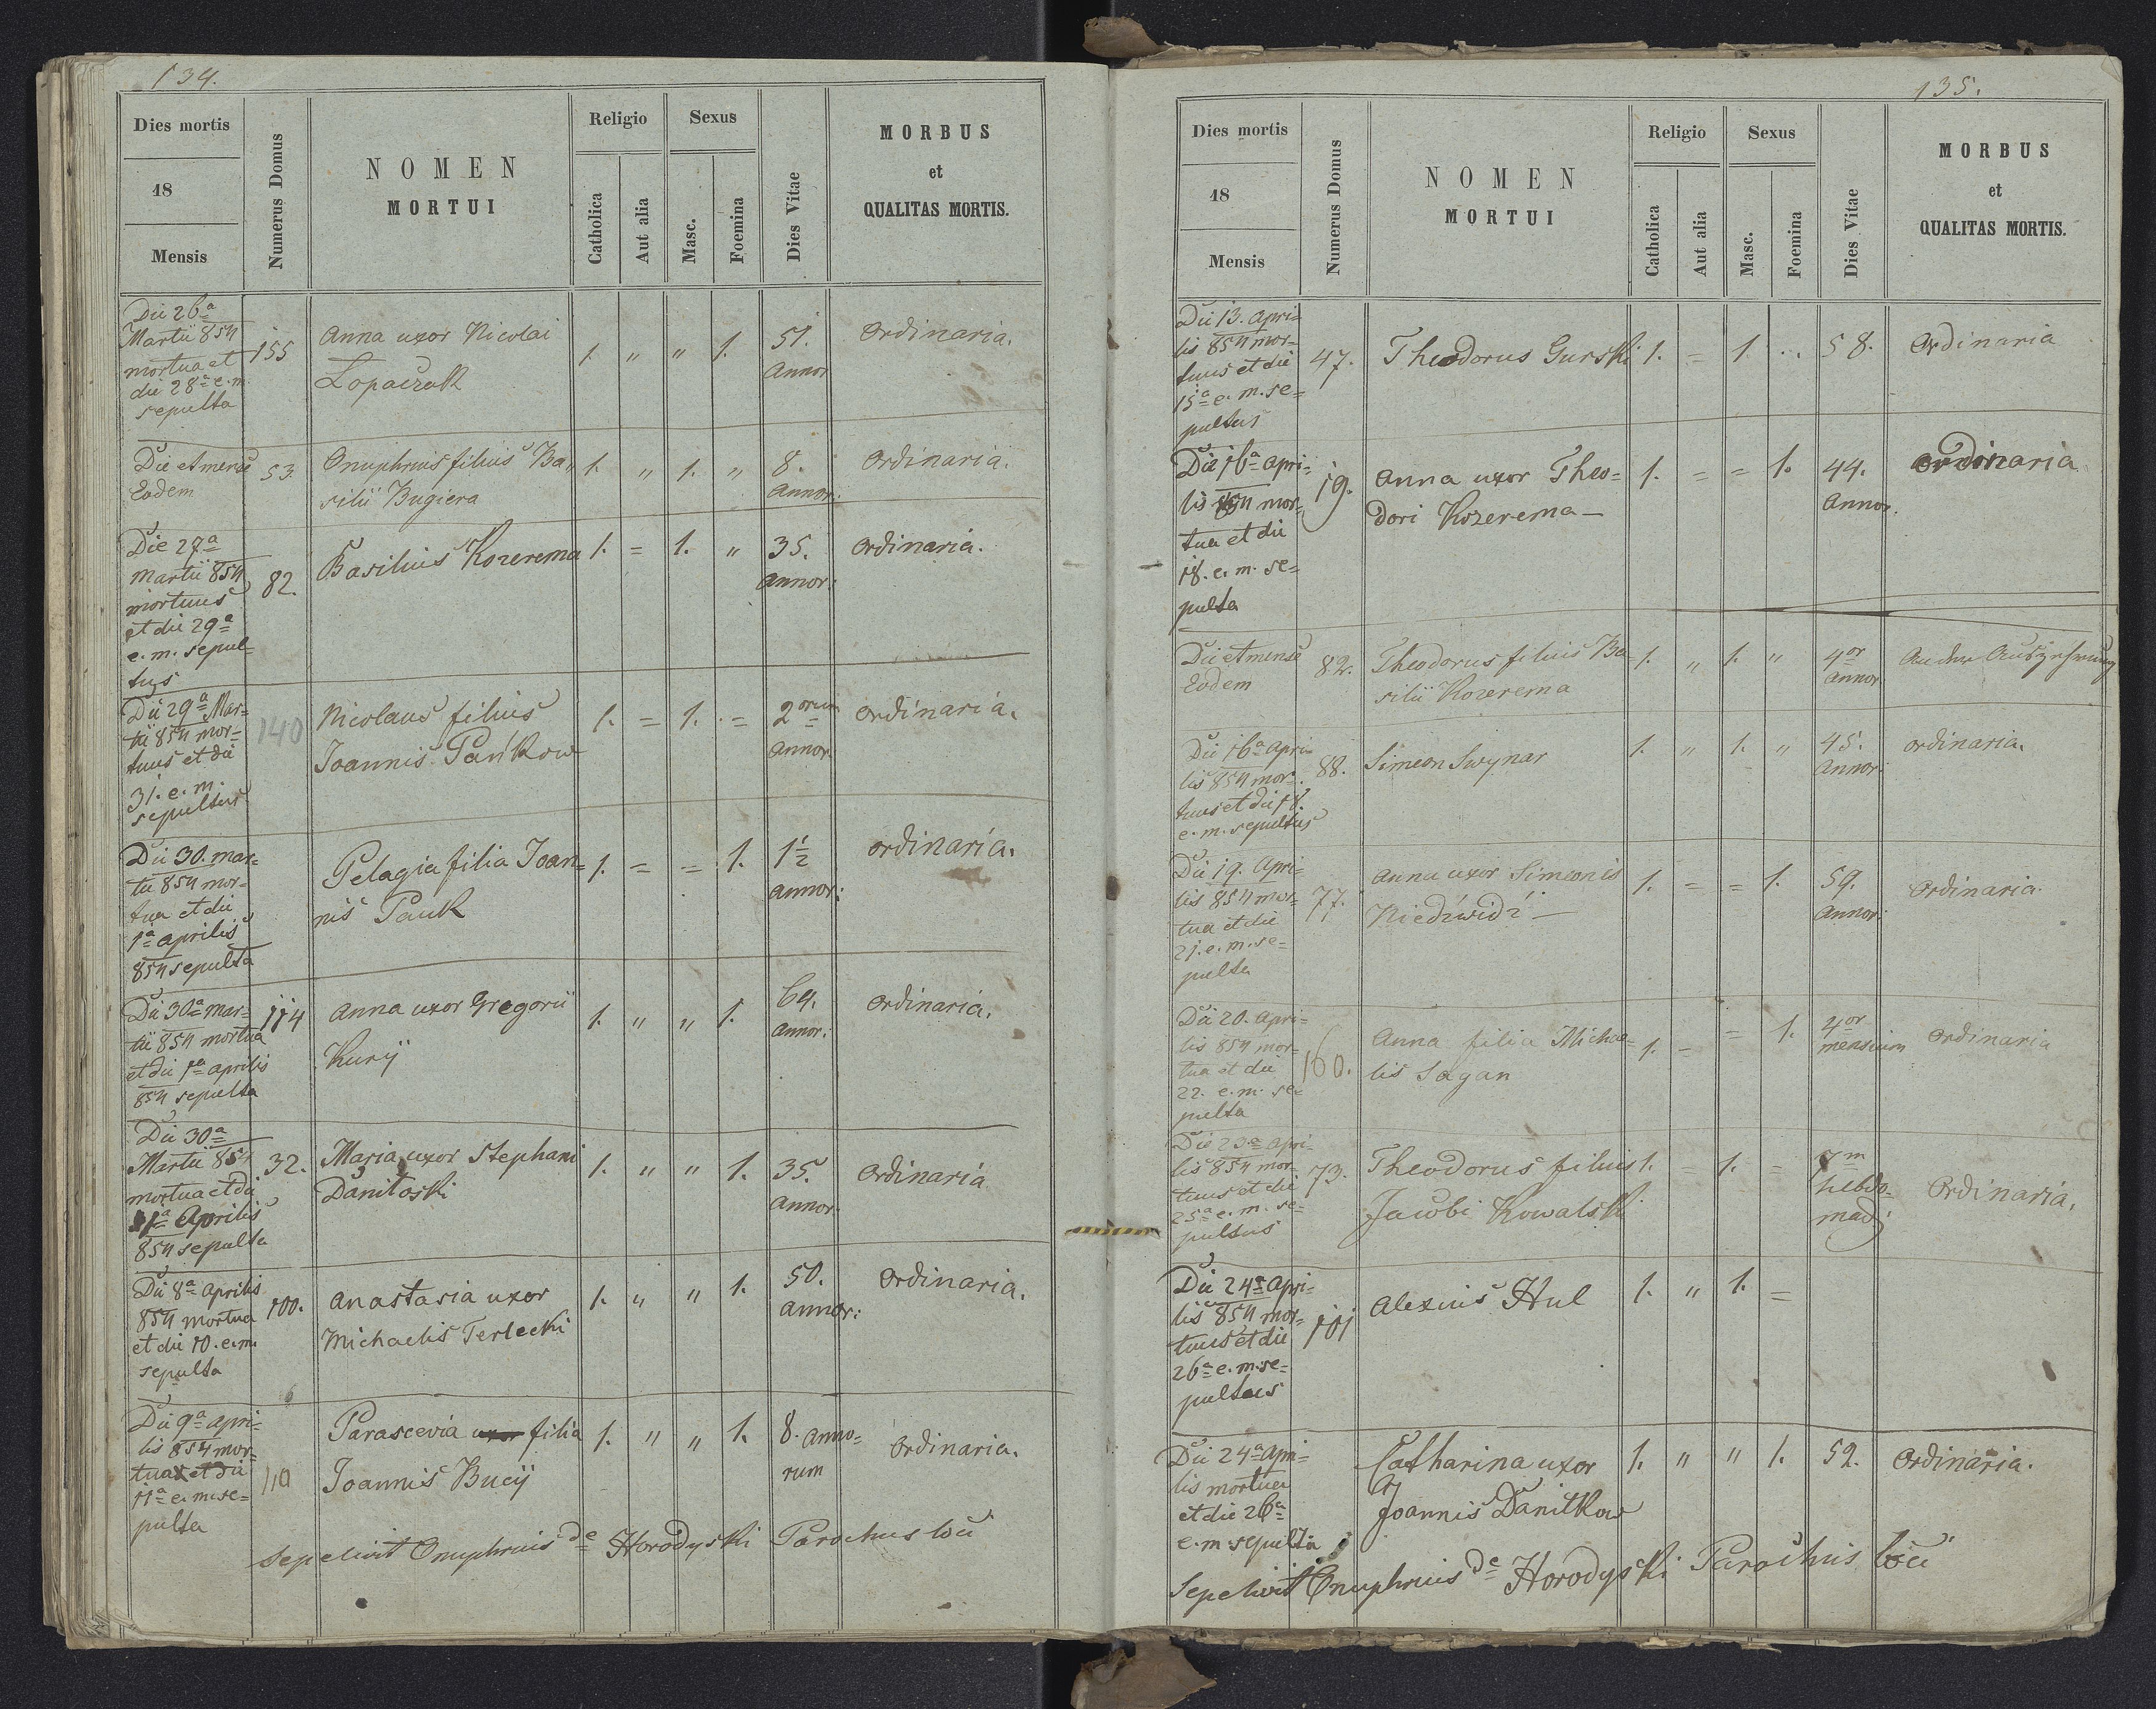 134.
Dies mortis
18
Mensis
Numerus Domus
NOMEN
MORTUI
Religio
Catholica
Aut alia
Sexus
Masc.
Foemina
Dies Vitae
MORBUS
et
QUALITAS MORTIS.
Die 26ª
Martii 854
mortua et
die 28ª e. m.
sepulta
155
Anna uxor Nicolai
Lopaczak
1. " " 1.
51.
Annor
Ordinaria.
Die et mense
Eodem
53.
Onuphrius filius Ba,,
silii Bugiera
1. " 1. "
8.
Annor:
Ordinaria.
Die 27ª
Martii 854
mortuus
et die 29ª
e. m. sepul-
tus
82.
Basilius Kozerema
1. = 1. "
35.
Annor:
Ordinaria.
Die 29ª Mar=
tii 854 mor=
tuus et die
31. e. m.
sepultus
140
Nicolaus filius
Joannis Pańkow
1. = 1. =
2orum
Annor.
Ordinaria.
Die 30. mar=
tii 854 mor=
tua et die
1ª aprilis
854 sepulta
Pelagia filia Joan=
nis Pauk
1. = = 1.
1½
Annor:
Ordinaria.
Die 30ª mar=
tii 854 mortua
et die 1ª aprilis
854 sepulta
114
Anna uxor Gregorii
Kurij
1. " " 1.
64.
Annor:
Ordinaria.
Die 30ª
Martii 854
mortua et die
1ª Aprilis
854 sepulta
32.
Maria uxor Stephani
Daniłoski
1. " " 1.
35.
Annor.
Ordinaria
Die 8ª Aprilis
854 mortua
et die 10. e. m.
sepulta
100.
Anastasia uxor
Michaelis Terlecki
1. " " 1.
50.
Annor:
Ordinaria.
Die 9ª apri=
lis 854 mor=
tua et die
11ª e. m. se=
pulta
110
Parascevia uxor filia
Joannis Bucij
1. " " 1.
8. Anno=
rum
Ordinaria.
Sepelivit Onuphrius de Horodyski Parochus loci
135.
Dies mortis
18
Mensis
Numerus Domus
NOMEN
MORTUI
Religio
Catholica
Aut alia
Sexus
Masc.
Foemina
Dies Vitae
MORBUS
et
QUALITAS MORTIS.
Die 13. Apri=
lis 854 mor=
tuus et die
15ª e. m. se=
pultus
47.
Theodorus Gurski
1. = 1 ..
58.
Ordinaria
Die 16ª apri=
lis 854 mor=
tua et die
18. e. m. se=
pulta
19.
Anna uxor Theo=
dori Kozerema
1. = = 1.
44.
Annor.
Ordinaria
Die et mense
Eodem
82.
Theodorus filius Ba
silii Kozerema
1. " 1. "
4or
Annor
An der Auszehrung
Die 16ª Apri
lis 854 mor=
tuus et die 18.
e. m. sepultus
88.
Simeon Swynar
1. " 1. "
45.
Annor:
Ordinaria.
Die 19. Apri=
lis 854 mor=
tua et die
21. e. m. se=
pulta
77.
Anna uxor Simeonis
Niedźwidź
1. = = 1.
59.
Annor:
Ordinaria.
Die 20. Apri=
lis 854 mor=
tua et die
22. e. m. se=
pulta
160.
Anna filia Michae=
lis Sagan
1. = = 1.
4or
mensium
Ordinaria
Die 23ª Apri=
lis 854 mor=
tuus et die
25ª e. m. se=
pultus
73.
Theodorus filius
Jacobi Kowalski
1. = 1. =
7m
hebdo=
mad:
Ordinaria.
Die 24ª Apri=
lis 854 mor=
tuus et die
26ª e. m. se=
pultus
101
Alexius Hul
1. " 1. =
Die 24ª Apri=
lis mortua
et die 26ª
e. m. sepulta
Catharina uxor
Joannis Daniłkow
1. " " 1.
52.
Ordinaria.
Sepelivit Onuphrius de Horodyski Parochus loci